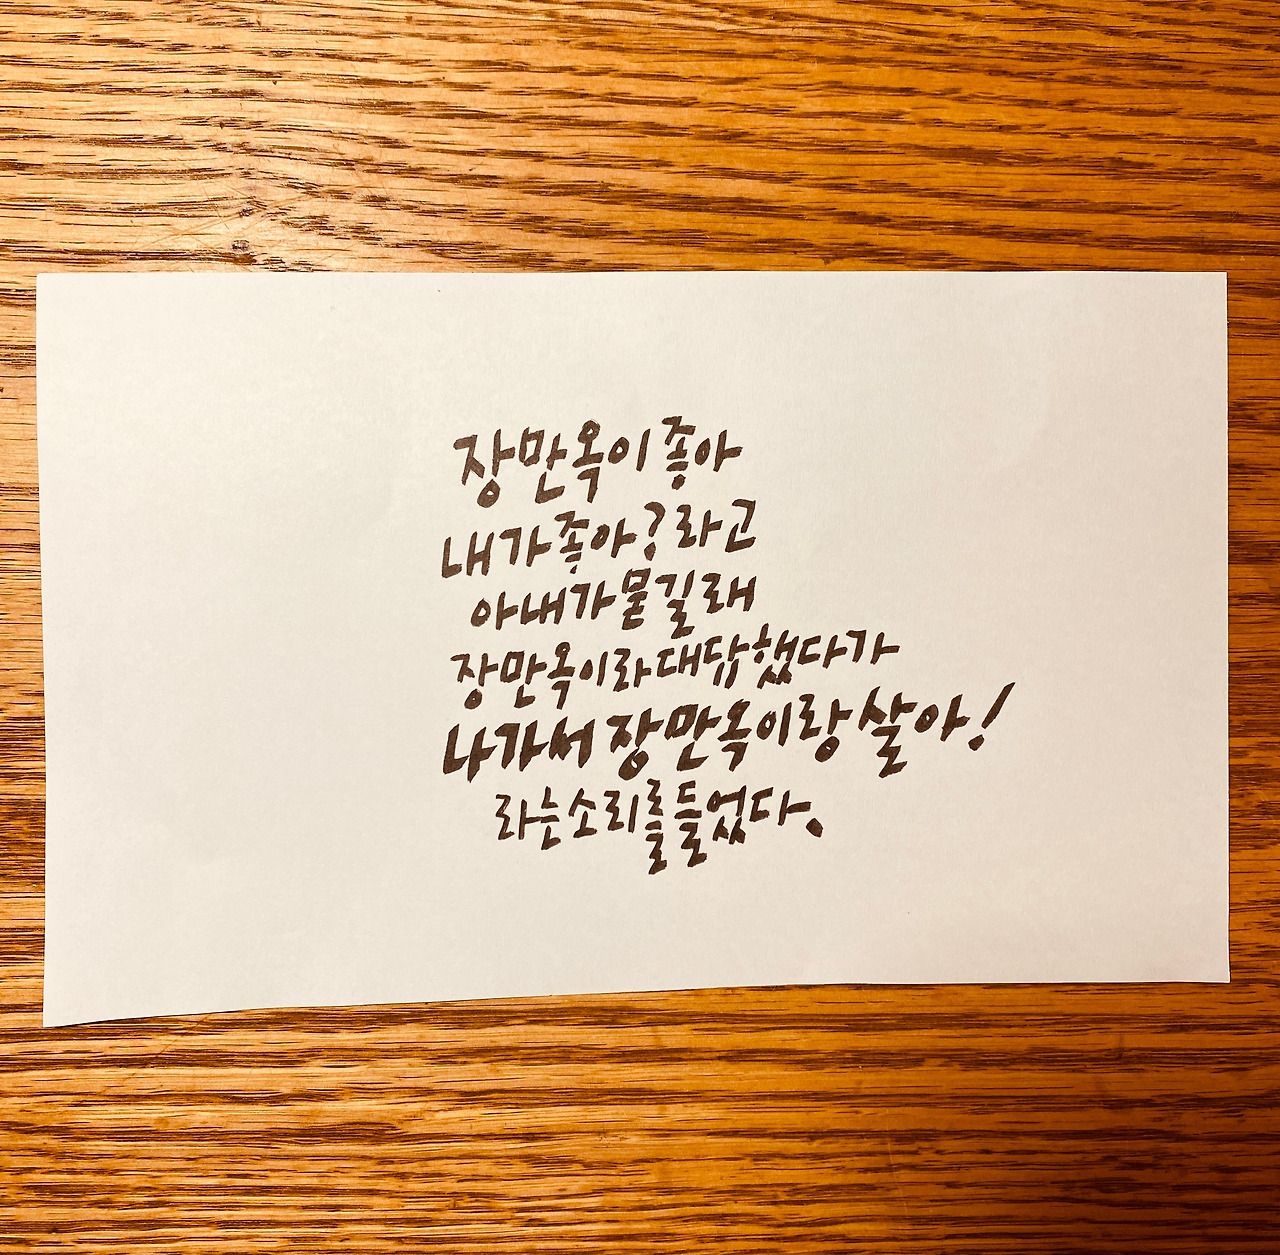 장만옥이 좋아
내가 좋아? 라고
아내가 묻길래
장만옥이라 대답했다가
나가서 장만옥이랑 살아!
라는 소리를 들었다.